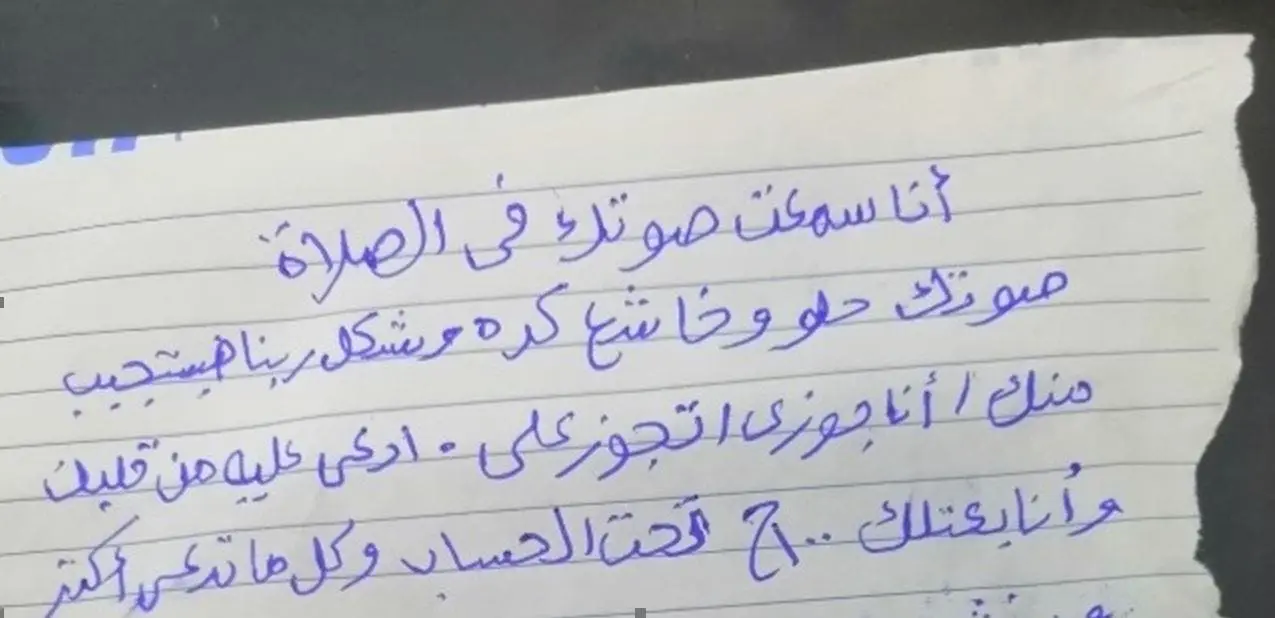 أنا سمعت صوتك فى الصلاة
صوتك حلو وخاشع كده وشكل ربنا هيستجيب
منك / أنا جوزى اتجوز على . ادعى عليه من قلبك
وأنا بعتلك ..ج تحت الحساب وكل ما تدعى أكتر